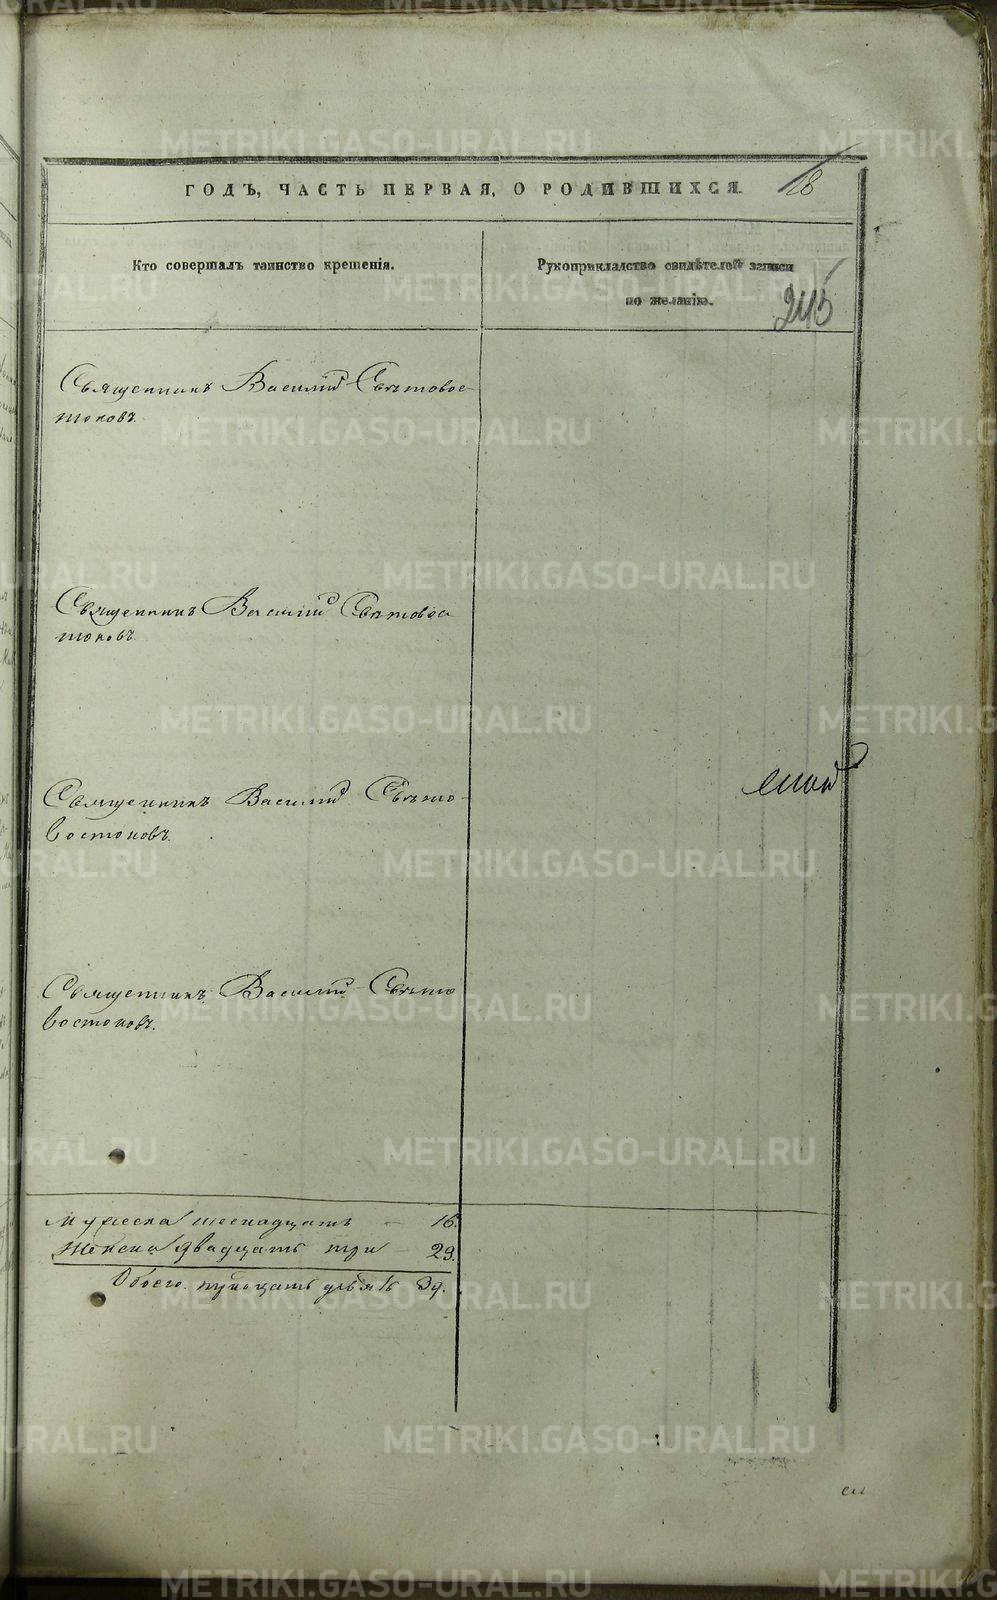 ГОДЪ, ЧАСТЬ ПЕРВАЯ, О РОДИВШИХСЯ.
18
Кто совершалъ таинство крещенія.
Рукоприкладство свидѣтелей записи
по желанію.
245
Священникъ Василій Свѣтовос-
токовъ.
Священникъ Василій Свѣтовос
токовъ.
Священникъ Василій Свѣто-
востоковъ.
Священникъ Василій Свѣто
востоковъ.
Мужеска шеснадцать - 16.
Женска двадцать три - 23.
Обоего тридцать девять 39.
METRIKI.GASO-URAL.RU